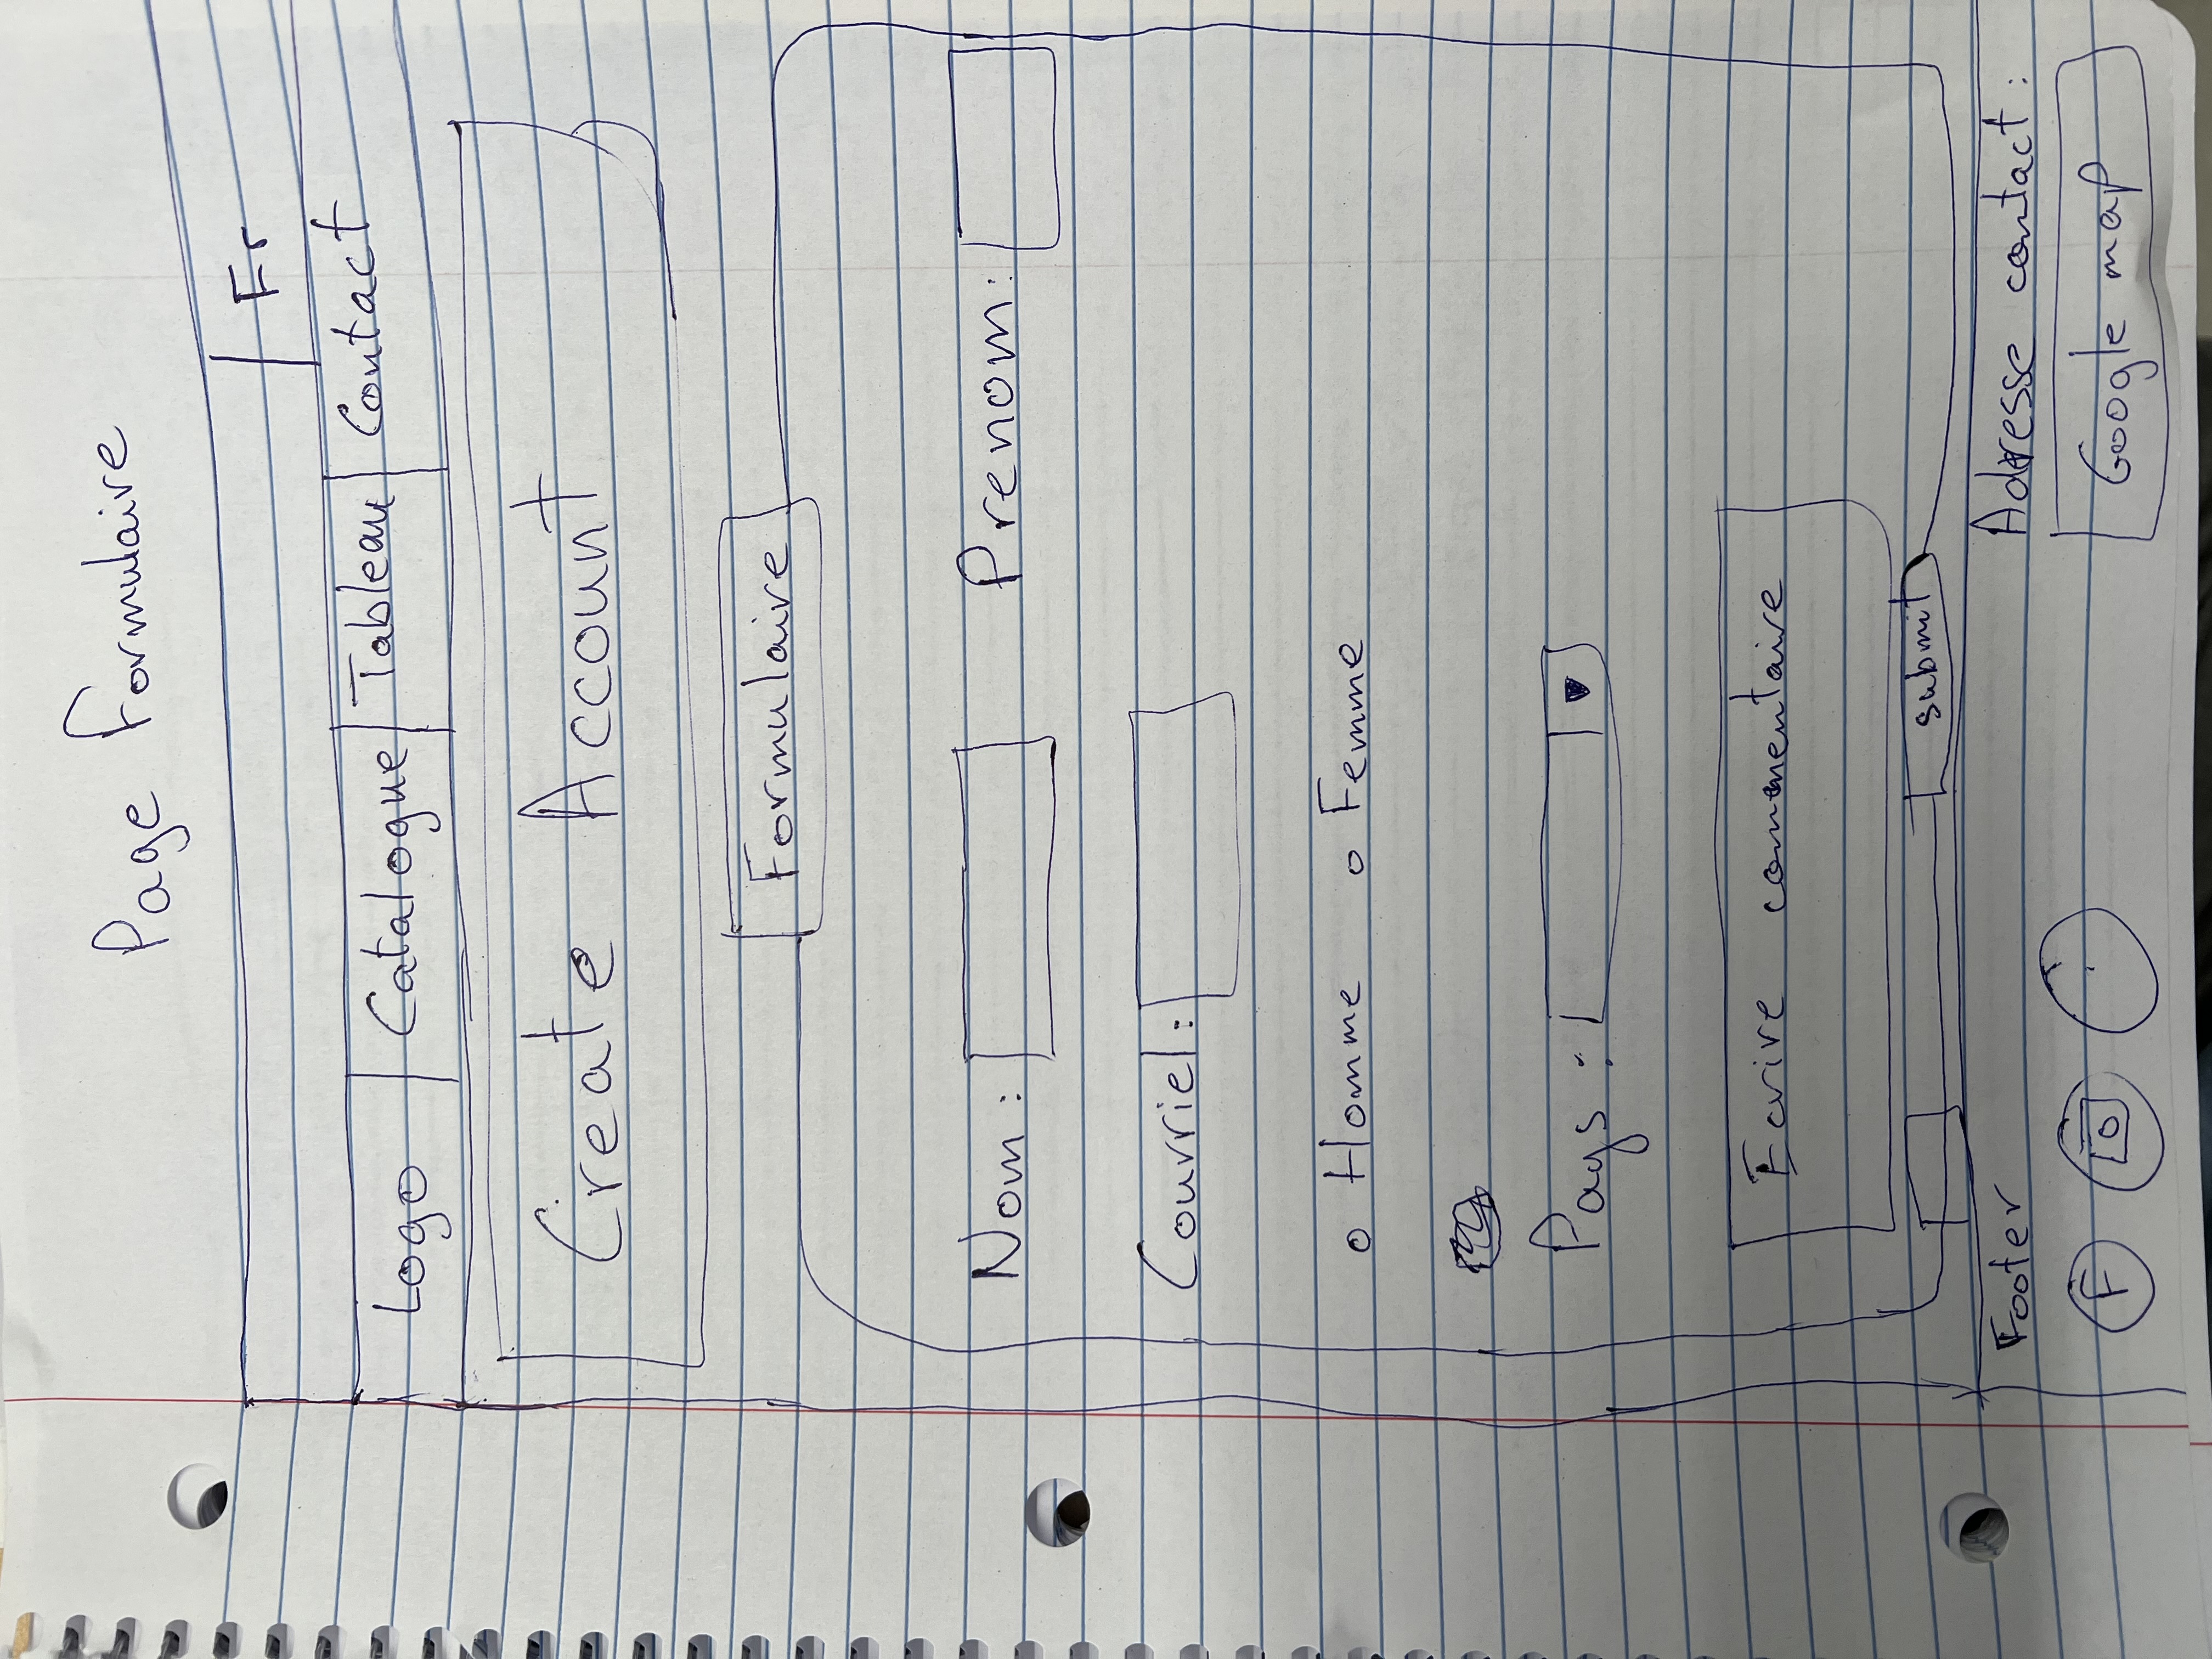 Page Formulaire
Fr
Logo Catalogue Tableau Contact
Create Account
Formulaire
Nom : Prenom:
Courriel:
Homme Femme
Pays :
Ecrire commentaire
submit
Footer Adresse contact :
F Google map